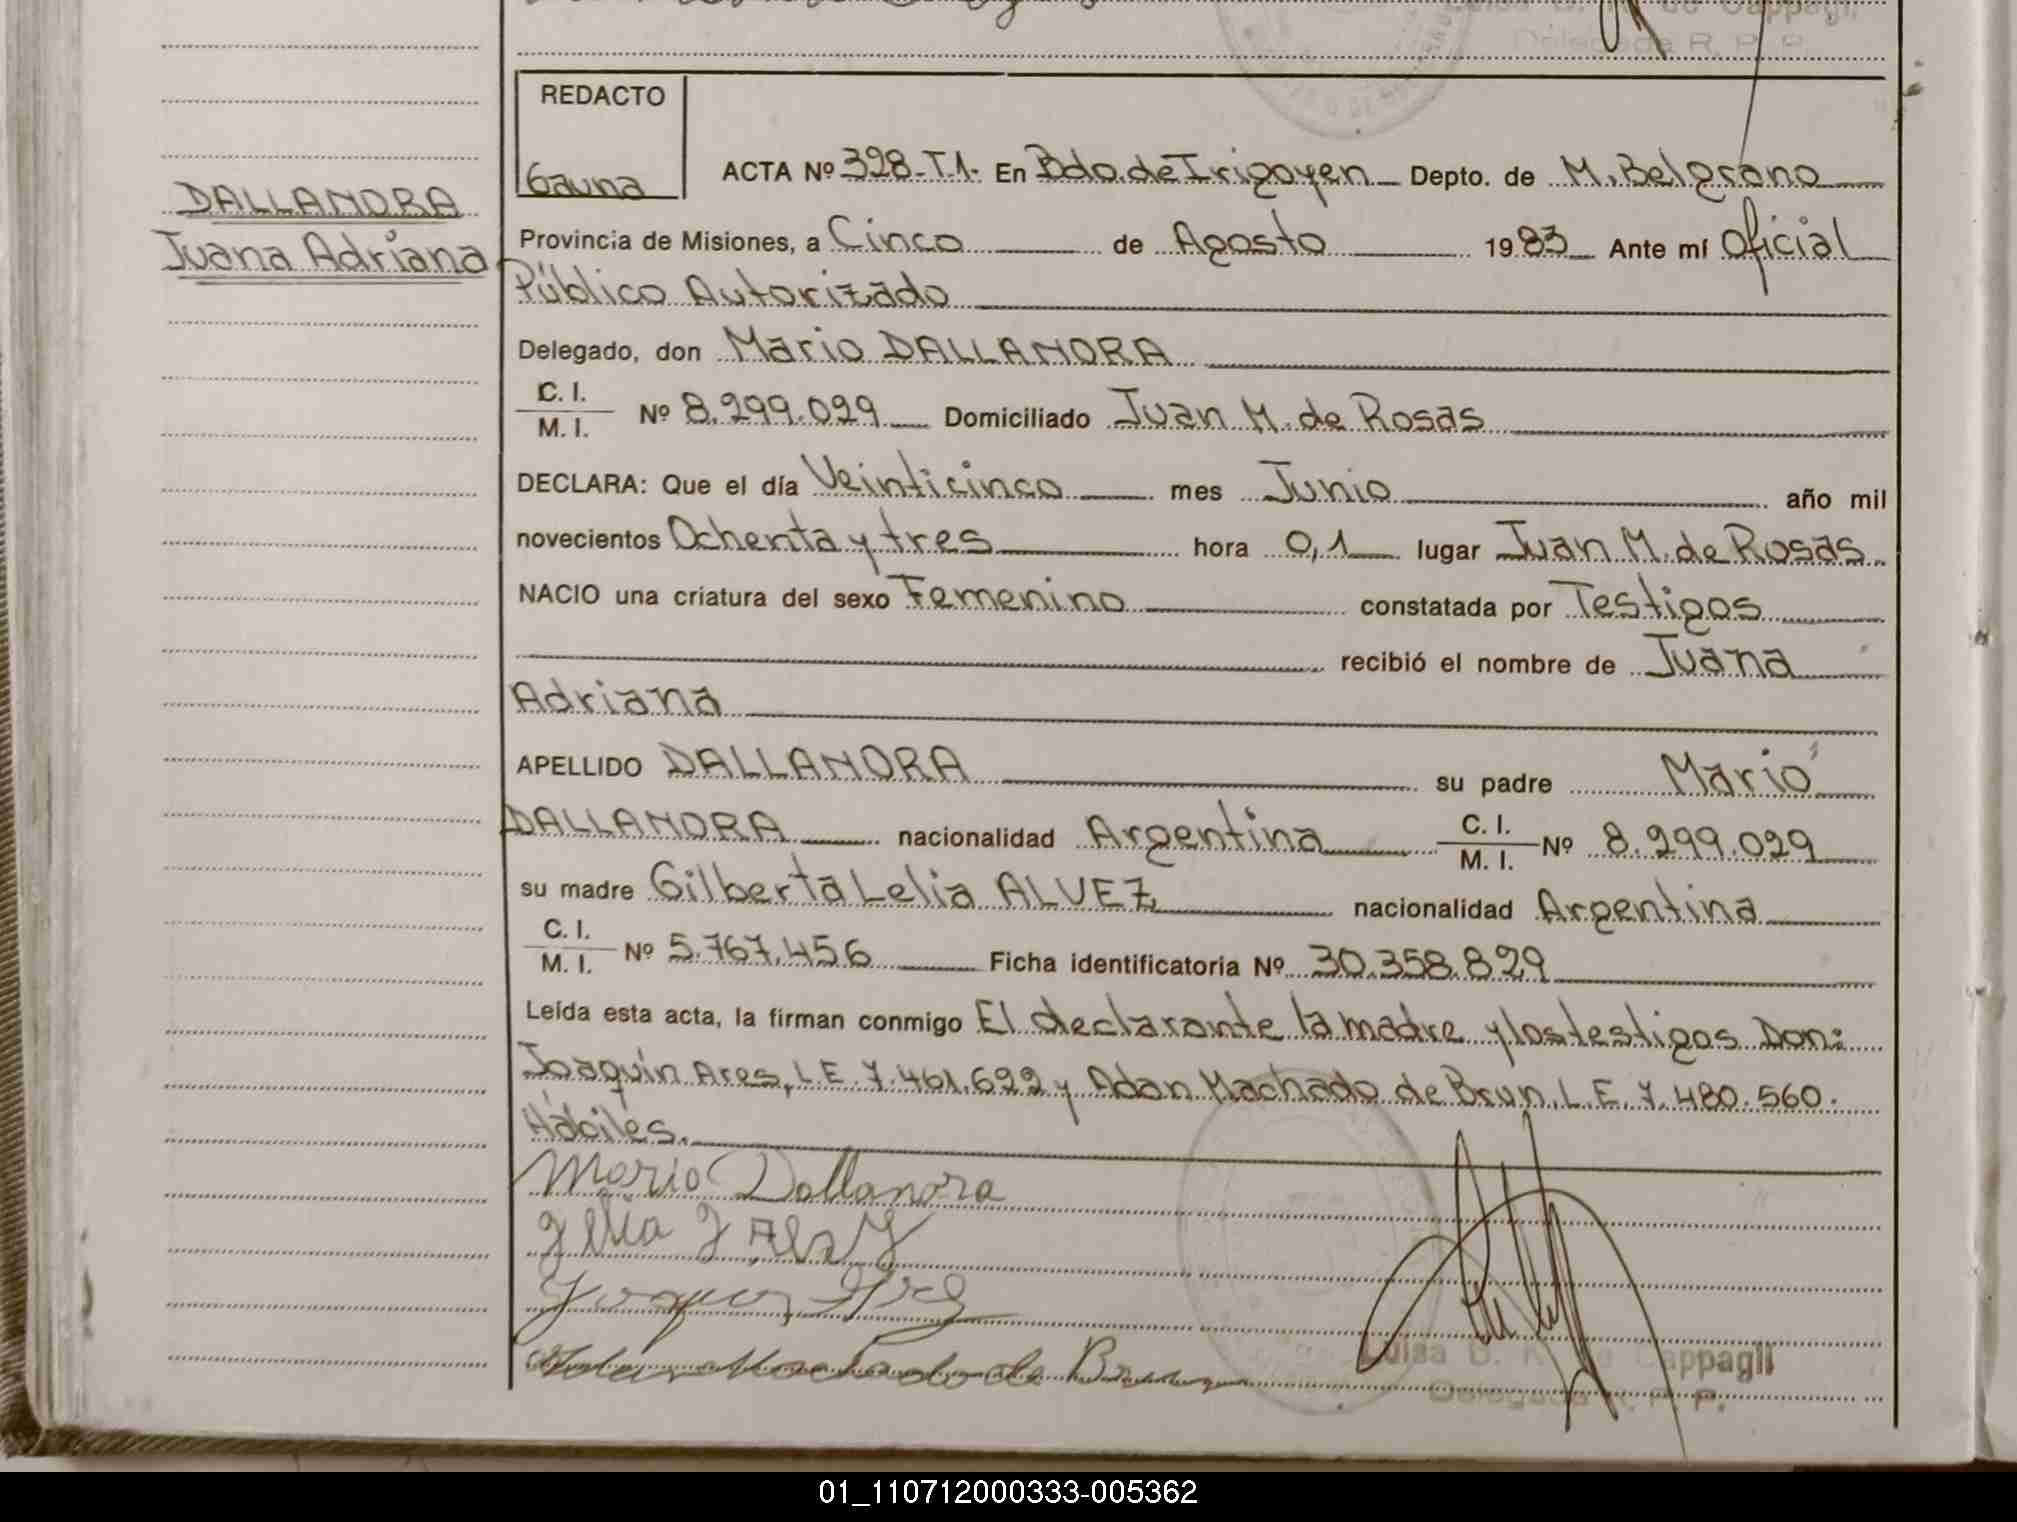 Delegada R. P. P.
REDACTO
Gauna
ACTA Nº 398-T.1. En Bdo. de Irigoyen Depto. de M. Belgrano
DALLANORA
Juana Adriana
Provincia de Misiones, a Cinco de Agosto 1983 Ante mí Oficial
Público Autorizado
Delegado, don Mario DALLANORA
C. I.
M. I. Nº 8.299.029 Domiciliado Juan M. de Rosas
DECLARA: Que el día Veinticinco mes Junio año mil
novecientos Ochenta y tres hora 0,1 lugar Juan M. de Rosas
NACIO una criatura del sexo Femenino constatada por Testigos
recibió el nombre de Juana
Adriana
APELLIDO DALLANORA su padre Mario
DALLANORA nacionalidad Argentina C. I.
M. I. Nº 8.299.029
su madre Gilberta Lelia ALVEZ nacionalidad Argentina
C. I.
M. I. Nº 5.767.456 Ficha identificatoria Nº 30.358.829
Leída esta acta, la firman conmigo El declarante la madre y los testigos Don:
Joaquín Ares, L.E. 7.461.622 y Adan Machado de Brun, L.E. 7.480.560.
Hábiles.
Mario Dallanora
Luisa D. Cappagli
Delegada R. P. P.
01_110712000333-005362